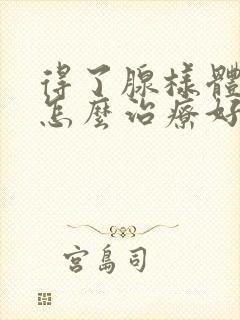 得了腺樣體
怎麼治療好
宮島司